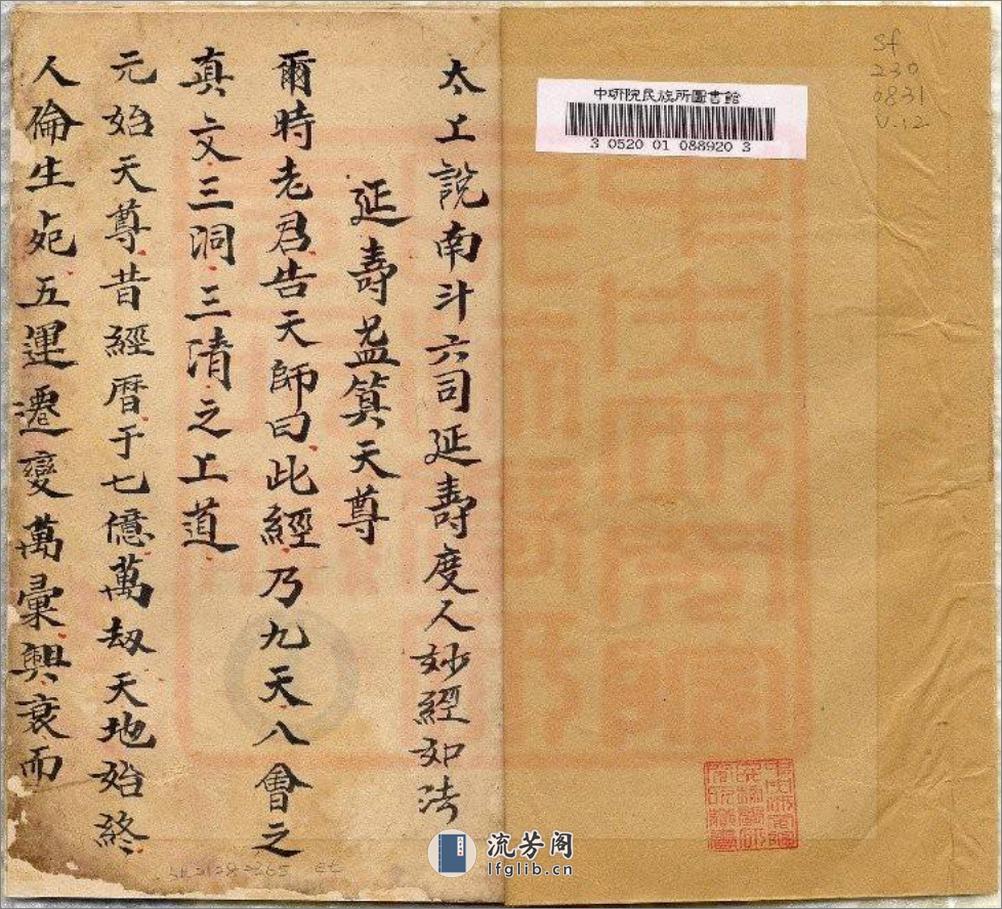 太上說南斗六司延壽度人妙經如法
延壽益算天尊
爾時老君告天師曰此經乃九天八會之
真文三洞三清之上道
元始天尊昔經曆于七億萬劫天地始終
人倫生死五運遷變萬彙興衰而
中研院民族所圖書館
3 0520 01 088920 3
Sf
230
0831
V.12
流芳阁
lfglib.cn